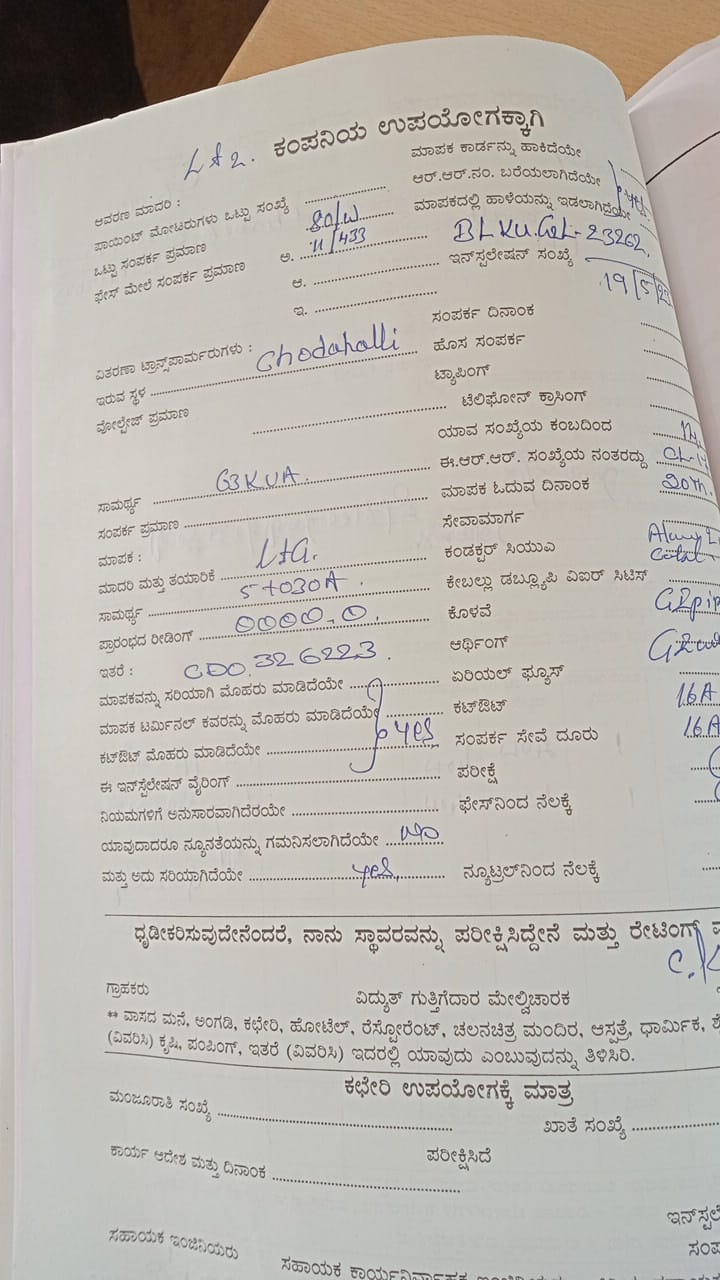 Lt 2. ಕಂಪನಿಯ ಉಪಯೋಗಕ್ಕಾಗಿ
ಮಾಪಕ ಕಾರ್ಡನ್ನು ಹಾಕಿದೆಯೇ
ಆವರಣ ಮಾದರಿ : ಆರ್.ಆರ್.ನಂ. ಬರೆಯಲಾಗಿದೆಯೇ
ಪಾಯಿಂಟ್ ಮೋಟರುಗಳು ಒಟ್ಟು ಸಂಖ್ಯೆ ಮಾಪಕದಲ್ಲಿ ಹಾಳೆಯನ್ನು ಇಡಲಾಗಿದೆಯೇ yes.
ಒಟ್ಟು ಸಂಪರ್ಕ ಪ್ರಮಾಣ 80/W
ಫೇಸ್ ಮೇಲೆ ಸಂಪರ್ಕ ಪ್ರಮಾಣ ಅ. 11/433
ಆ. ಇನ್‌ಸ್ಟಲೇಷನ್ ಸಂಖ್ಯೆ 23262.
ಇ. 19/5/
ಸಂಪರ್ಕ ದಿನಾಂಕ
ವಿತರಣಾ ಟ್ರಾನ್ಸ್‌ಪಾರ್ಮರುಗಳು : Chodahalli ಹೊಸ ಸಂಪರ್ಕ
ಇರುವ ಸ್ಥಳ ಟ್ಯಾಪಿಂಗ್
ವೋಲ್ಟೇಜ್ ಪ್ರಮಾಣ ಟೆಲಿಫೋನ್ ಕ್ರಾಸಿಂಗ್
ಯಾವ ಸಂಖ್ಯೆಯ ಕಂಬದಿಂದ
ಸಾಮರ್ಥ್ಯ 63KVA. ಈ.ಆರ್.ಆರ್. ಸಂಖ್ಯೆಯ ನಂತರದ್ದು
ಸಂಪರ್ಕ ಪ್ರಮಾಣ ಮಾಪಕ ಓದುವ ದಿನಾಂಕ 20th.
ಮಾಪಕ : ಸೇವಾಮಾರ್ಗ
ಮಾದರಿ ಮತ್ತು ತಯಾರಿಕೆ L+G. ಕಂಡಕ್ಟರ್ ಸಿಯುಎ
ಸಾಮರ್ಥ್ಯ 5 to 30A. ಕೇಬಲ್ಲು ಡಬ್ಲ್ಯೂಪಿ ವಿಐಆರ್ ಸಿಟಿಸ್
ಪ್ರಾರಂಭದ ರೀಡಿಂಗ್ 0000.0. ಕೊಳವೆ
ಇತರೆ : CDO.326223. ಆರ್ಥಿಂಗ್
ಮಾಪಕವನ್ನು ಸರಿಯಾಗಿ ಮೊಹರು ಮಾಡಿದೆಯೇ ಏರಿಯಲ್ ಫ್ಯೂಸ್
ಮಾಪಕ ಟರ್ಮಿನಲ್ ಕವರನ್ನು ಮೊಹರು ಮಾಡಿದೆಯೇ ಕಟ್‌ಔಟ್ 16A
ಕಟ್‌ಔಟ್ ಮೊಹರು ಮಾಡಿದೆಯೇ yes ಸಂಪರ್ಕ ಸೇವೆ ದೂರು 16A
ಈ ಇನ್‌ಸ್ಟಲೇಷನ್ ವೈರಿಂಗ್ ಪರೀಕ್ಷೆ
ನಿಯಮಗಳಿಗೆ ಅನುಸಾರವಾಗಿದೆರಯೇ ಫೇಸ್‌ನಿಂದ ನೆಲಕ್ಕೆ
ಯಾವುದಾದರೂ ನ್ಯೂನತೆಯನ್ನು ಗಮನಿಸಲಾಗಿದೆಯೇ No
ಮತ್ತು ಅದು ಸರಿಯಾಗಿದೆಯೇ yes. ನ್ಯೂಟ್ರಲ್‌ನಿಂದ ನೆಲಕ್ಕೆ
ಧೃಡೀಕರಿಸುವುದೇನೆಂದರೆ, ನಾನು ಸ್ಥಾವರವನ್ನು ಪರೀಕ್ಷಿಸಿದ್ದೇನೆ ಮತ್ತು ರೇಟಿಂಗ್
ಗ್ರಾಹಕರು ವಿದ್ಯುತ್ ಗುತ್ತಿಗೆದಾರ ಮೇಲ್ವಿಚಾರಕ
** ವಾಸದ ಮನೆ, ಅಂಗಡಿ, ಕಛೇರಿ, ಹೋಟೆಲ್, ರೆಸ್ಟೋರೆಂಟ್, ಚಲನಚಿತ್ರ ಮಂದಿರ, ಆಸ್ಪತ್ರೆ, ಧಾರ್ಮಿಕ,
(ವಿವರಿಸಿ) ಕೃಷಿ, ಪಂಪಿಂಗ್, ಇತರೆ (ವಿವರಿಸಿ) ಇದರಲ್ಲಿ ಯಾವುದು ಎಂಬುವುದನ್ನು ತಿಳಿಸಿರಿ.
ಕಛೇರಿ ಉಪಯೋಗಕ್ಕೆ ಮಾತ್ರ
ಮಂಜೂರಾತಿ ಸಂಖ್ಯೆ ಖಾತೆ ಸಂಖ್ಯೆ
ಕಾರ್ಯ ಆದೇಶ ಮತ್ತು ದಿನಾಂಕ ಪರೀಕ್ಷಿಸಿದೆ
ಸಹಾಯಕ ಇಂಜಿನಿಯರು